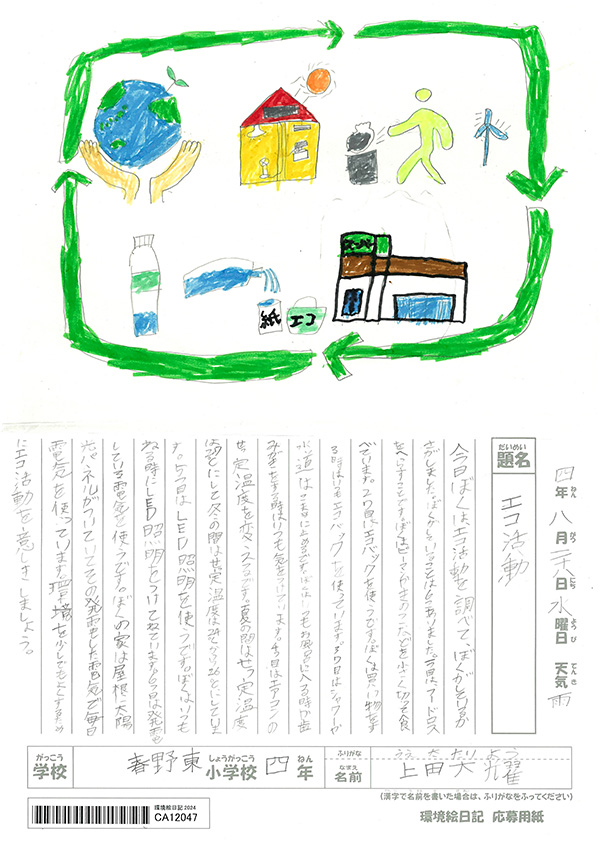 スーパー
紙
エコ
四年 八月 二八日 水曜日 天気 雨
だいめい
題名
エコ活動
今日ぼくはエコ活動を調べて、ぼくがしているか
さがしました。ぼくがしていることは6こありました。1つ目はフードロス
をへらすことです。ぼくはピーマンがきらい
小さく切って食
べています。2つ目はエコバックを使う事です。ぼくは買い物をす
る時はいつもエコバックを使っています。3つ目はシャワーや
水道はこまめに止める事です。ぼくはいつもお風呂に入る時や歯
みがきをする時はいつも気をつけています。4つ目はエアコンの
せっ定温度を変へる事です。夏の間はせっ定温度
は28どにして冬の間はせっ定温度は
26どにしていま
す。5つ目はLED照明を使う事です。ぼくはいつも
ねる時にLED照明をつけてねています。6つ目は発電
している電気を使う事です。ぼくの家は屋根に太陽
光パネルがついていてその発電した電気で毎日
電気を使っています。環境を少しでもよくするため
にエコ活動を意しきしましょう。
がっこう
学校
春野東小学校 四年
ふりがな
なまえ
名前
上田
(漢字で名前を書いた場合は、ふりがなをふってください)
環境絵日記2024
CA12047
環境絵日記 応募用紙